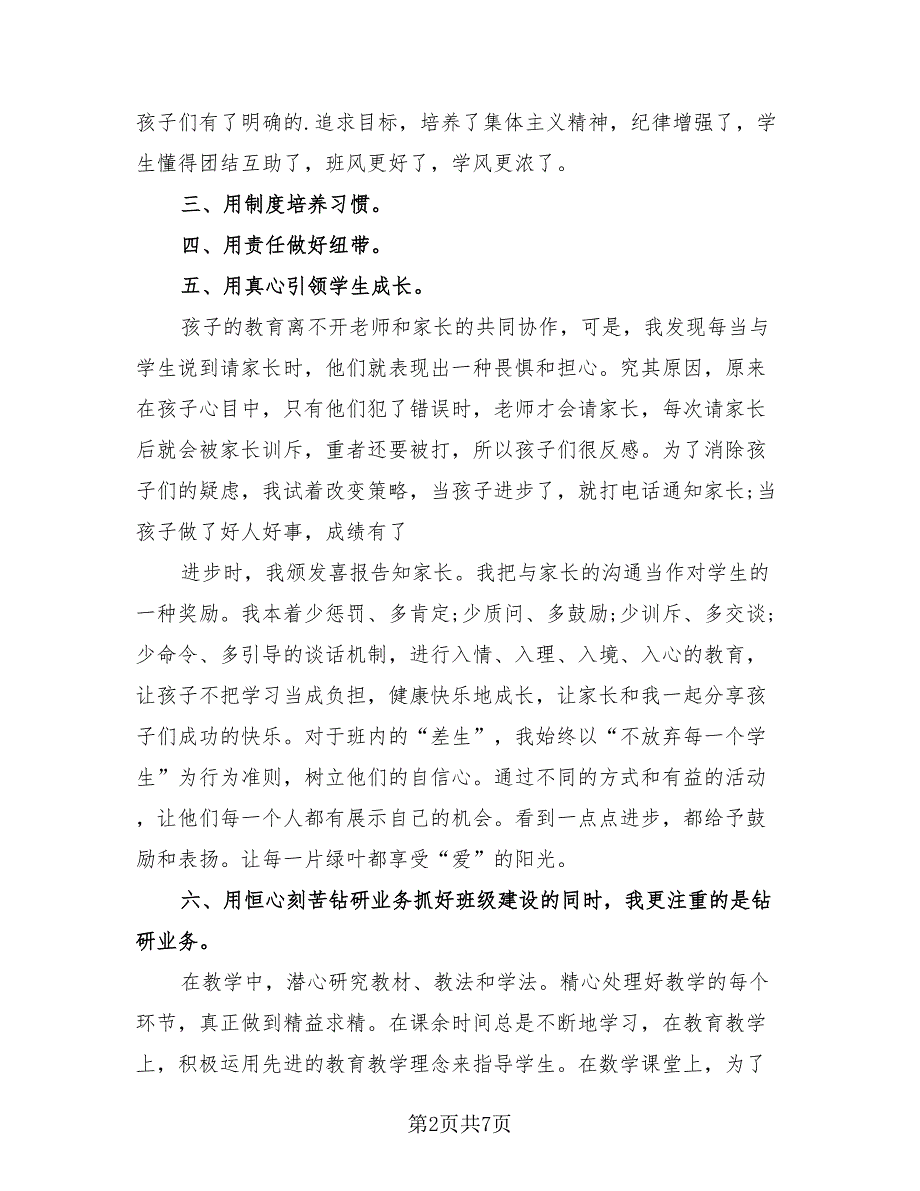 孩子们有了明确的.追求目标，培养了集体主义精神，纪律增强了，学
生懂得团结互助了，班风更好了，学风更浓了。
三、用制度培养习惯。
四、用责任做好纽带。
五、用真心引领学生成长。
孩子的教育离不开老师和家长的共同协作，可是，我发现每当与
学生说到请家长时，他们就表现出一种畏惧和担心。究其原因，原来
在孩子心目中，只有他们犯了错误时，老师才会请家长，每次请家长
后就会被家长训斥，重者还要被打，所以孩子们很反感。为了消除孩
子们的疑虑，我试着改变策略，当孩子进步了，就打电话通知家长;当
孩子做了好人好事，成绩有了
进步时，我颁发喜报告知家长。我把与家长的沟通当作对学生的
一种奖励。我本着少惩罚、多肯定;少质问、多鼓励;少训斥、多交谈;
少命令、多引导的谈话机制，进行入情、入理、入境、入心的教育，
让孩子不把学习当成负担，健康快乐地成长，让家长和我一起分享孩
子们成功的快乐。对于班内的“差生”，我始终以“不放弃每一个学
生”为行为准则，树立他们的自信心。通过不同的方式和有益的活动
，让他们每一个人都有展示自己的机会。看到一点点进步，都给予鼓
励和表扬。让每一片绿叶都享受“爱”的阳光。
六、用恒心刻苦钻研业务抓好班级建设的同时，我更注重的是钻
研业务。
在教学中，潜心研究教材、教法和学法。精心处理好教学的每个
环节，真正做到精益求精。在课余时间总是不断地学习，在教育教学
上，积极运用先进的教育教学理念来指导学生。在数学课堂上，为了
第2页共7页